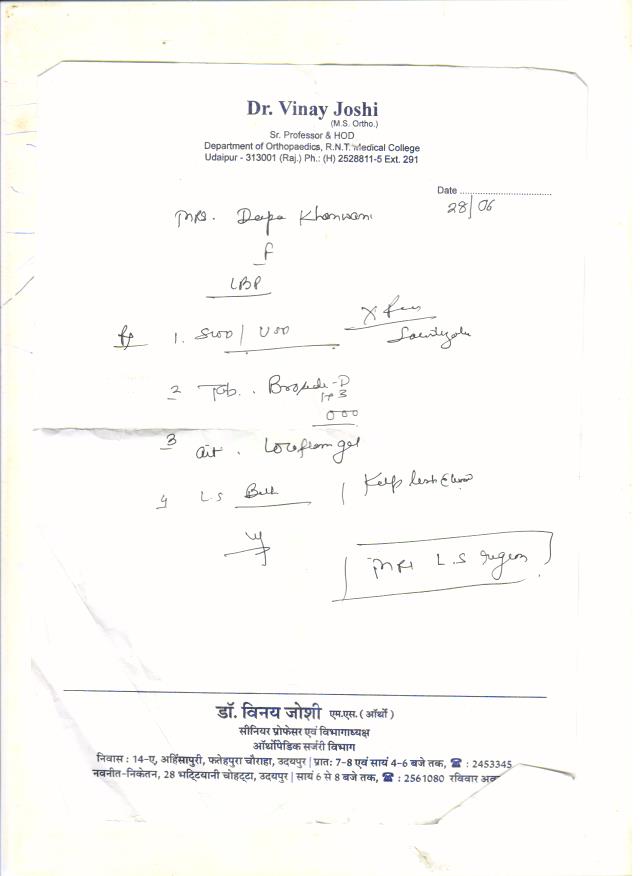 Dr. Vinay Joshi
(M.S. Ortho.)
Sr. Professor & HOD
Department of Orthopaedics, R.N.T. Medical College
Udaipur - 313001 (Raj.) Ph.: (H) 2528811-5 Ext. 291
Date ................................
28/06
Mrs. Deepa
F
LBP
X
Rx 1. /
2 Tab. -D
1+3
000
3 gel
4 L.S Belt
MRI L.S region
डॉ. विनय जोशी एम.एस. ( ऑर्थो )
सीनियर प्रोफेसर एवं विभागाध्यक्ष
ऑर्थोपेडिक सर्जरी विभाग
निवास : 14-ए, अहिंसापुरी, फतेहपुरा चौराहा, उदयपुर | प्रातः 7-8 एवं सायं 4-6 बजे तक, ☎ : 2453345
नवनीत-निकेतन, 28 भट्टियानी चोहट्टा, उदयपुर | सायं 6 से 8 बजे तक, ☎ : 2561080 रविवार